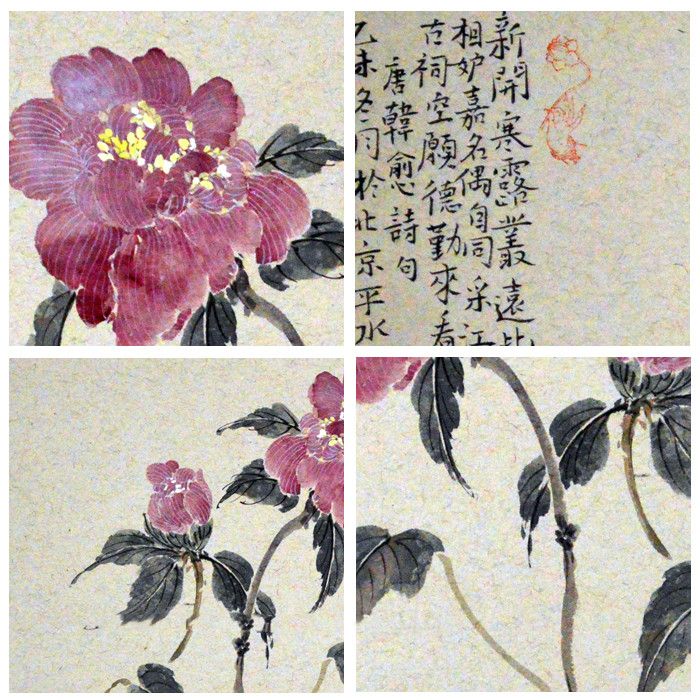 新開寒露叢遠比
相妒嘉名偶自同采江
古祠空願德勤來看
唐韓愈詩句
乙未冬月於北京平水